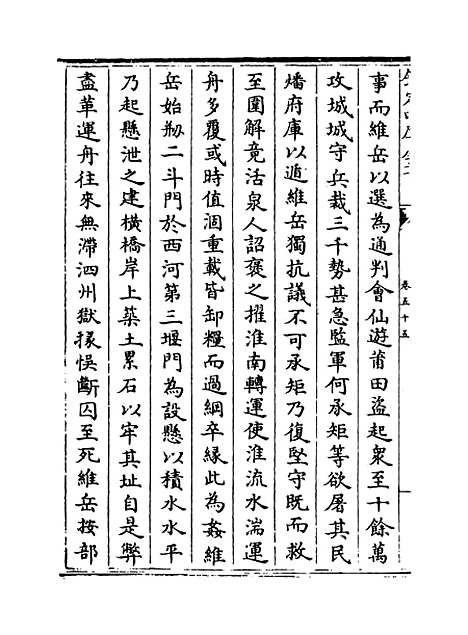 事而維岳以選為通判會仙遊莆田盗起衆至十餘萬
攻城城守兵裁三千勢甚急監軍何承矩等欲屠其民
燔府庫以遁維岳獨抗議不可承矩乃復堅守既而救
至圍解竟活泉人詔褒之擢淮南轉運使淮流水湍運
舟多覆或時值涸重載皆卸糧而過綱卒緣此為姦維
岳始剏二斗門於西河第三堰門為設懸以積水水平
乃起懸泄之建橫橋岸上築土累石以牢其址自是弊
盡革運舟往來無滯泗州獄掾悞斷囚至死維岳按部
卷五十五